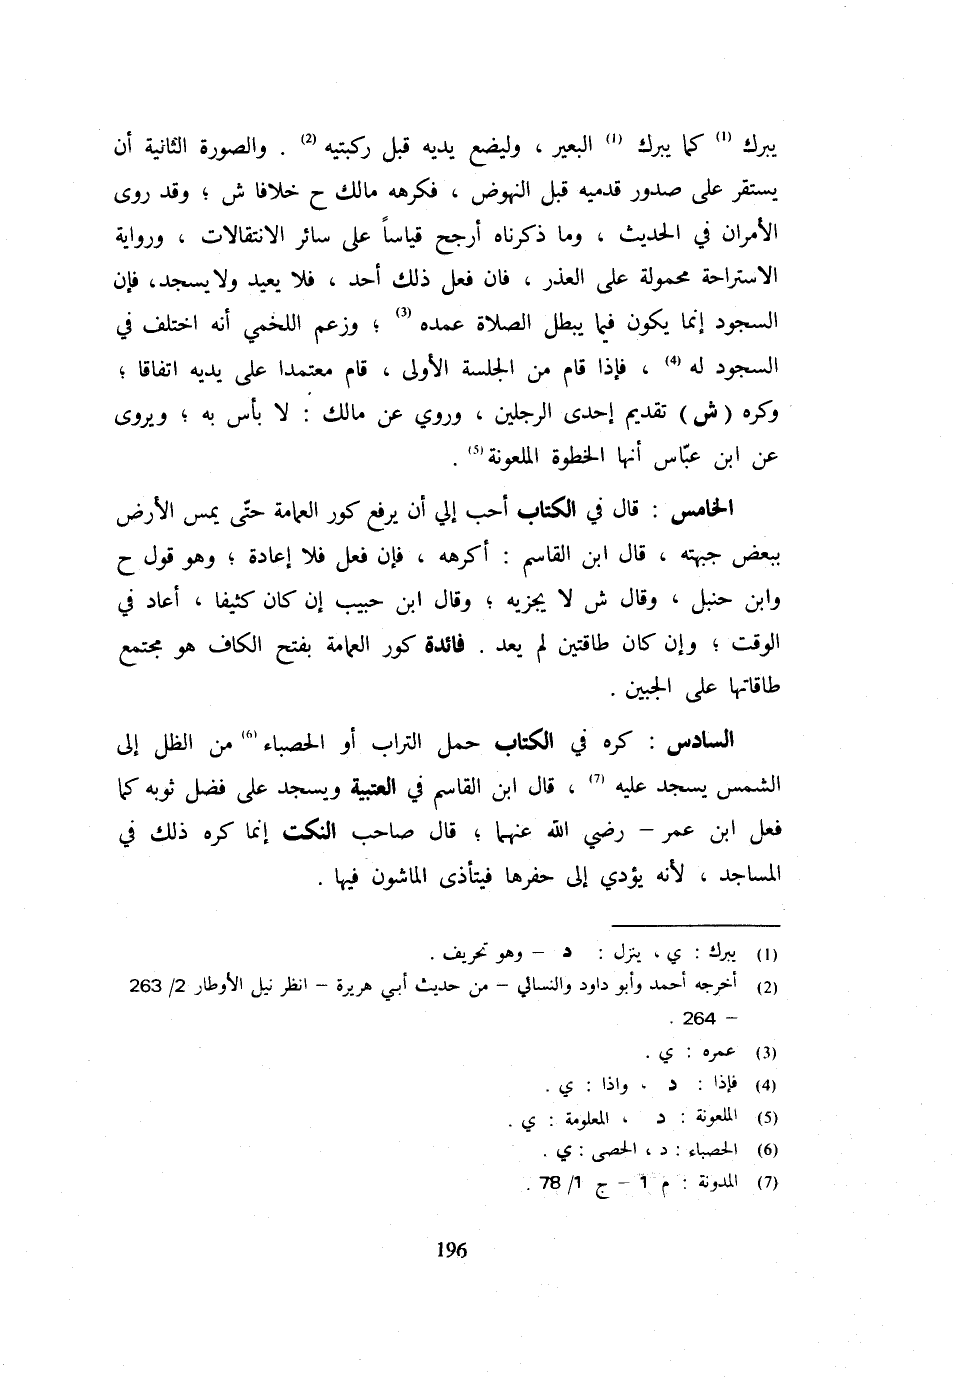 يبرك (1) كما يبرك (1) البعير ، وليضع يديه قبل ركبتيه (2) . والصورة الثانية أن
يستقر على صدور قدميه قبل النهوض ، فكرهه مالك ح خلافا ش ؛ وقد روى
الأمران في الحديث ، وما ذكرناه أرجح قياساً على سائر الانتقالات ، ورواية
الاستراحة محمولة على العذر ، فان فعل ذلك أحد ، فلا يعيد ولا يسجد، فإن
السجود إنما يكون فيما يبطل الصلاة عمده (3) ؛ وزعم اللخمي أنه اختلف في
السجود له (4) ، فإذا قام من الجلسة الأولى ، قام معتمدا على يديه اتفاقا ؛
وكره (ش) تقديم إحدى الرجلين ، وروي عن مالك : لا بأس به ؛ ويروى
عن ابن عبّاس أنها الخطوة الملعونة (5) .
الخامس : قال في الكتاب أحب إلي أن يرفع كور العمامة حتّى يمس الأرض
ببعض جبهته ، قال ابن القاسم : أكرهه ، فإن فعل فلا إعادة ؛ وهو قول ح
وابن حنبل ، وقال ش لا يجزيه ؛ وقال ابن حبيب إن كان كثيفا ، أعاد في
الوقت ؛ وإن كان طاقتين لم يعد . فائدة كور العمامة بفتح الكاف هو مجتمع
طاقاتها على الجبين .
السادس : كره في الكتاب حمل التراب أو الحصباء (6) من الظل إلى
الشمس يسجد عليه (7) ، قال ابن القاسم في العتبية ويسجد على فضل ثوبه كما
فعل ابن عمر – رضي الله عنهما ؛ قال صاحب النكت إنما كره ذلك في
المساجد ، لأنه يؤدي إلى حفرها فيتأذى الماشون فيها .
(1) يبرك : ي ، ينزل : د – وهو تحريف .
(2) أخرجه أحمد وأبو داود والنسائي – من حديث أبي هريرة – انظر نيل الأوطار 2/ 263
– 264 .
(3) عمره : ي .
(4) فإذا : د ، واذا : ي .
(5) الملعونة : د ، المعلومة : ي .
(6) الحصباء : د ، الحصى : ي .
(7) المدونة : م 1 – ج 1/ 78 .
196